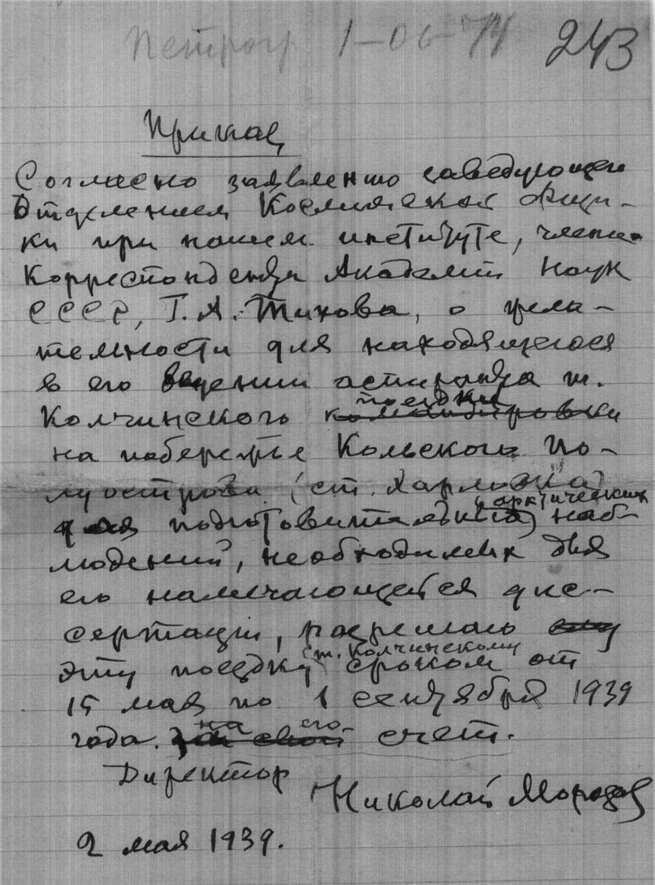 1-06-74 243
Приказ
Согласно заявлению заведующего
Отделением Космической Физи-
ки при нашем институте, члена-
Корреспондента Академии Наук
СССР, Г. А. Тихова, о жела-
тельности для находящегося
в его ведении аспиранта т.
Колчинского командировки поездки
на побережье Кольского По-
луострова (ст. Харловка)
для подготовительных, арктических, наб-
людений, необходимых для
его намечающейся дис-
сертации, разрешаю ему
эту поездку т. Колчинскому сроком от
15 мая по 1 сентября 1939
года за свой на его счет.
Директор
Николай Морозов
2 мая 1939.